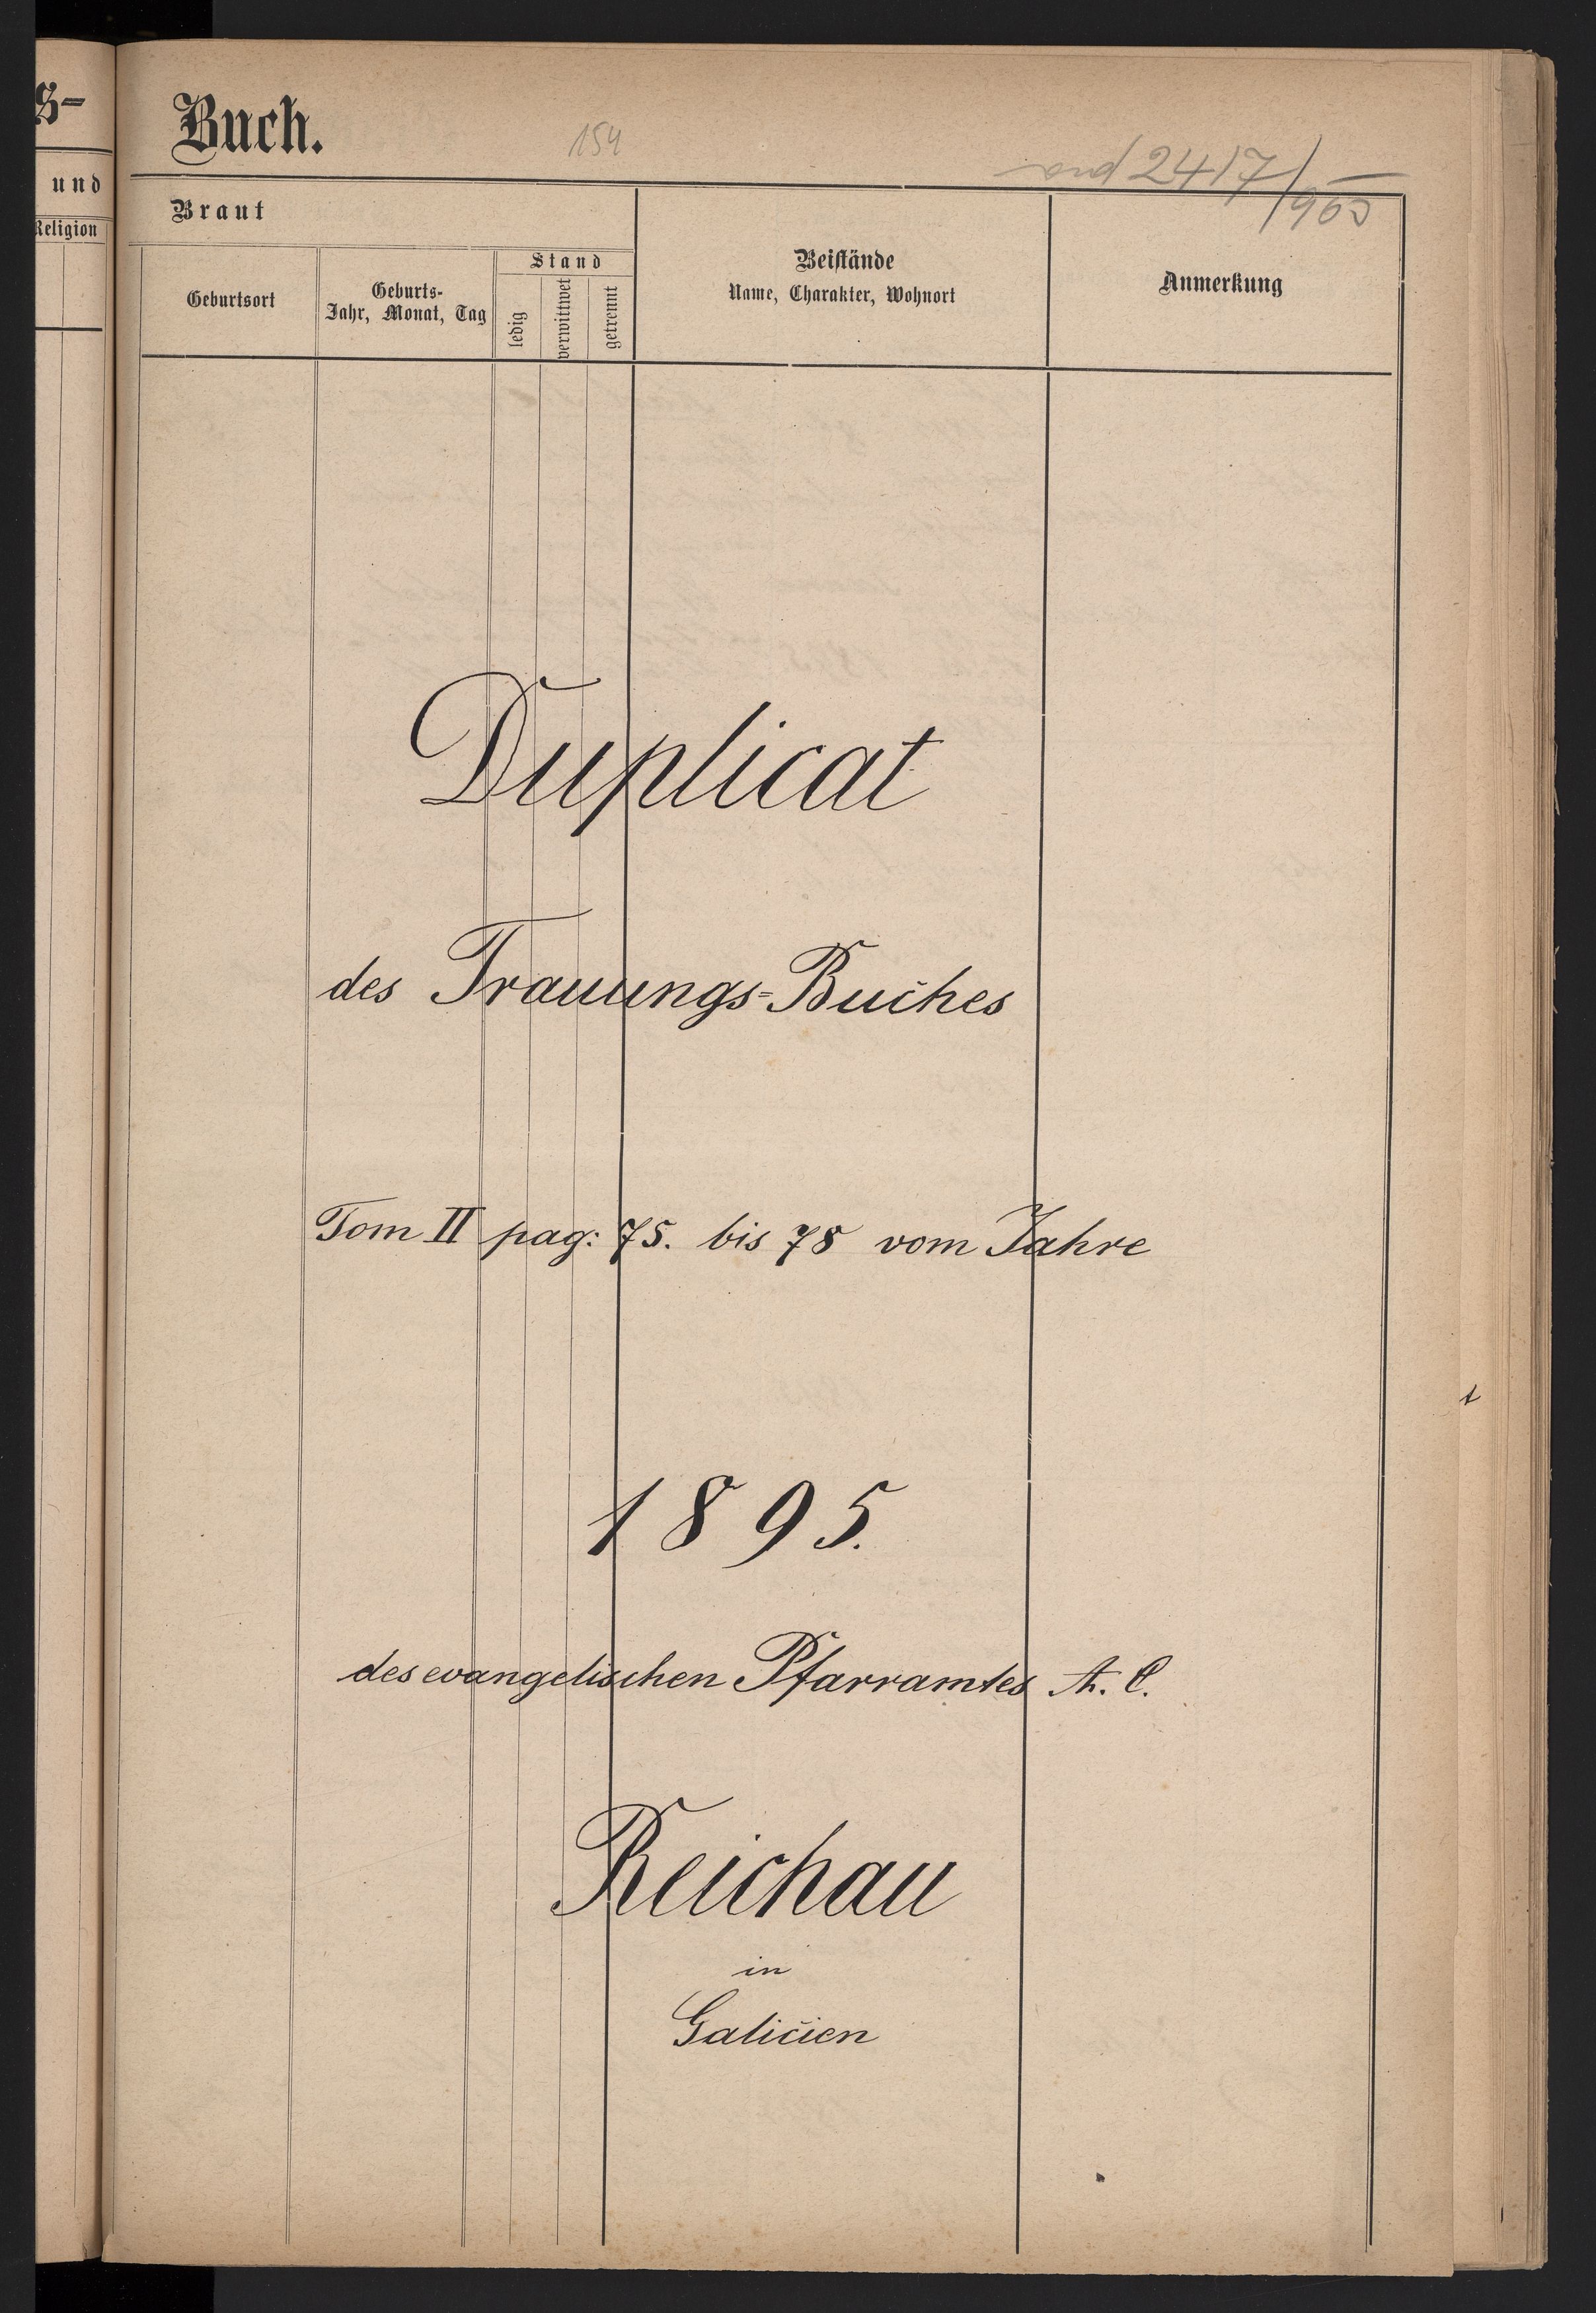 s-
und
Religion
Buch.
154
ad 2417/
Braut
Geburtsort
Geburts-
Jahr, Monat, Tag
Stand
ledig
verwittwet
getrennt
Beistände
Name, Charakter, Wohnort
Anmerkung
Duplicat
des Trauungs=Buches
Tom II pag: 75. bis 78 vom Jahre
1895.
des evangelischen Pfarramtes A. C.
Reichau
in
Galicien